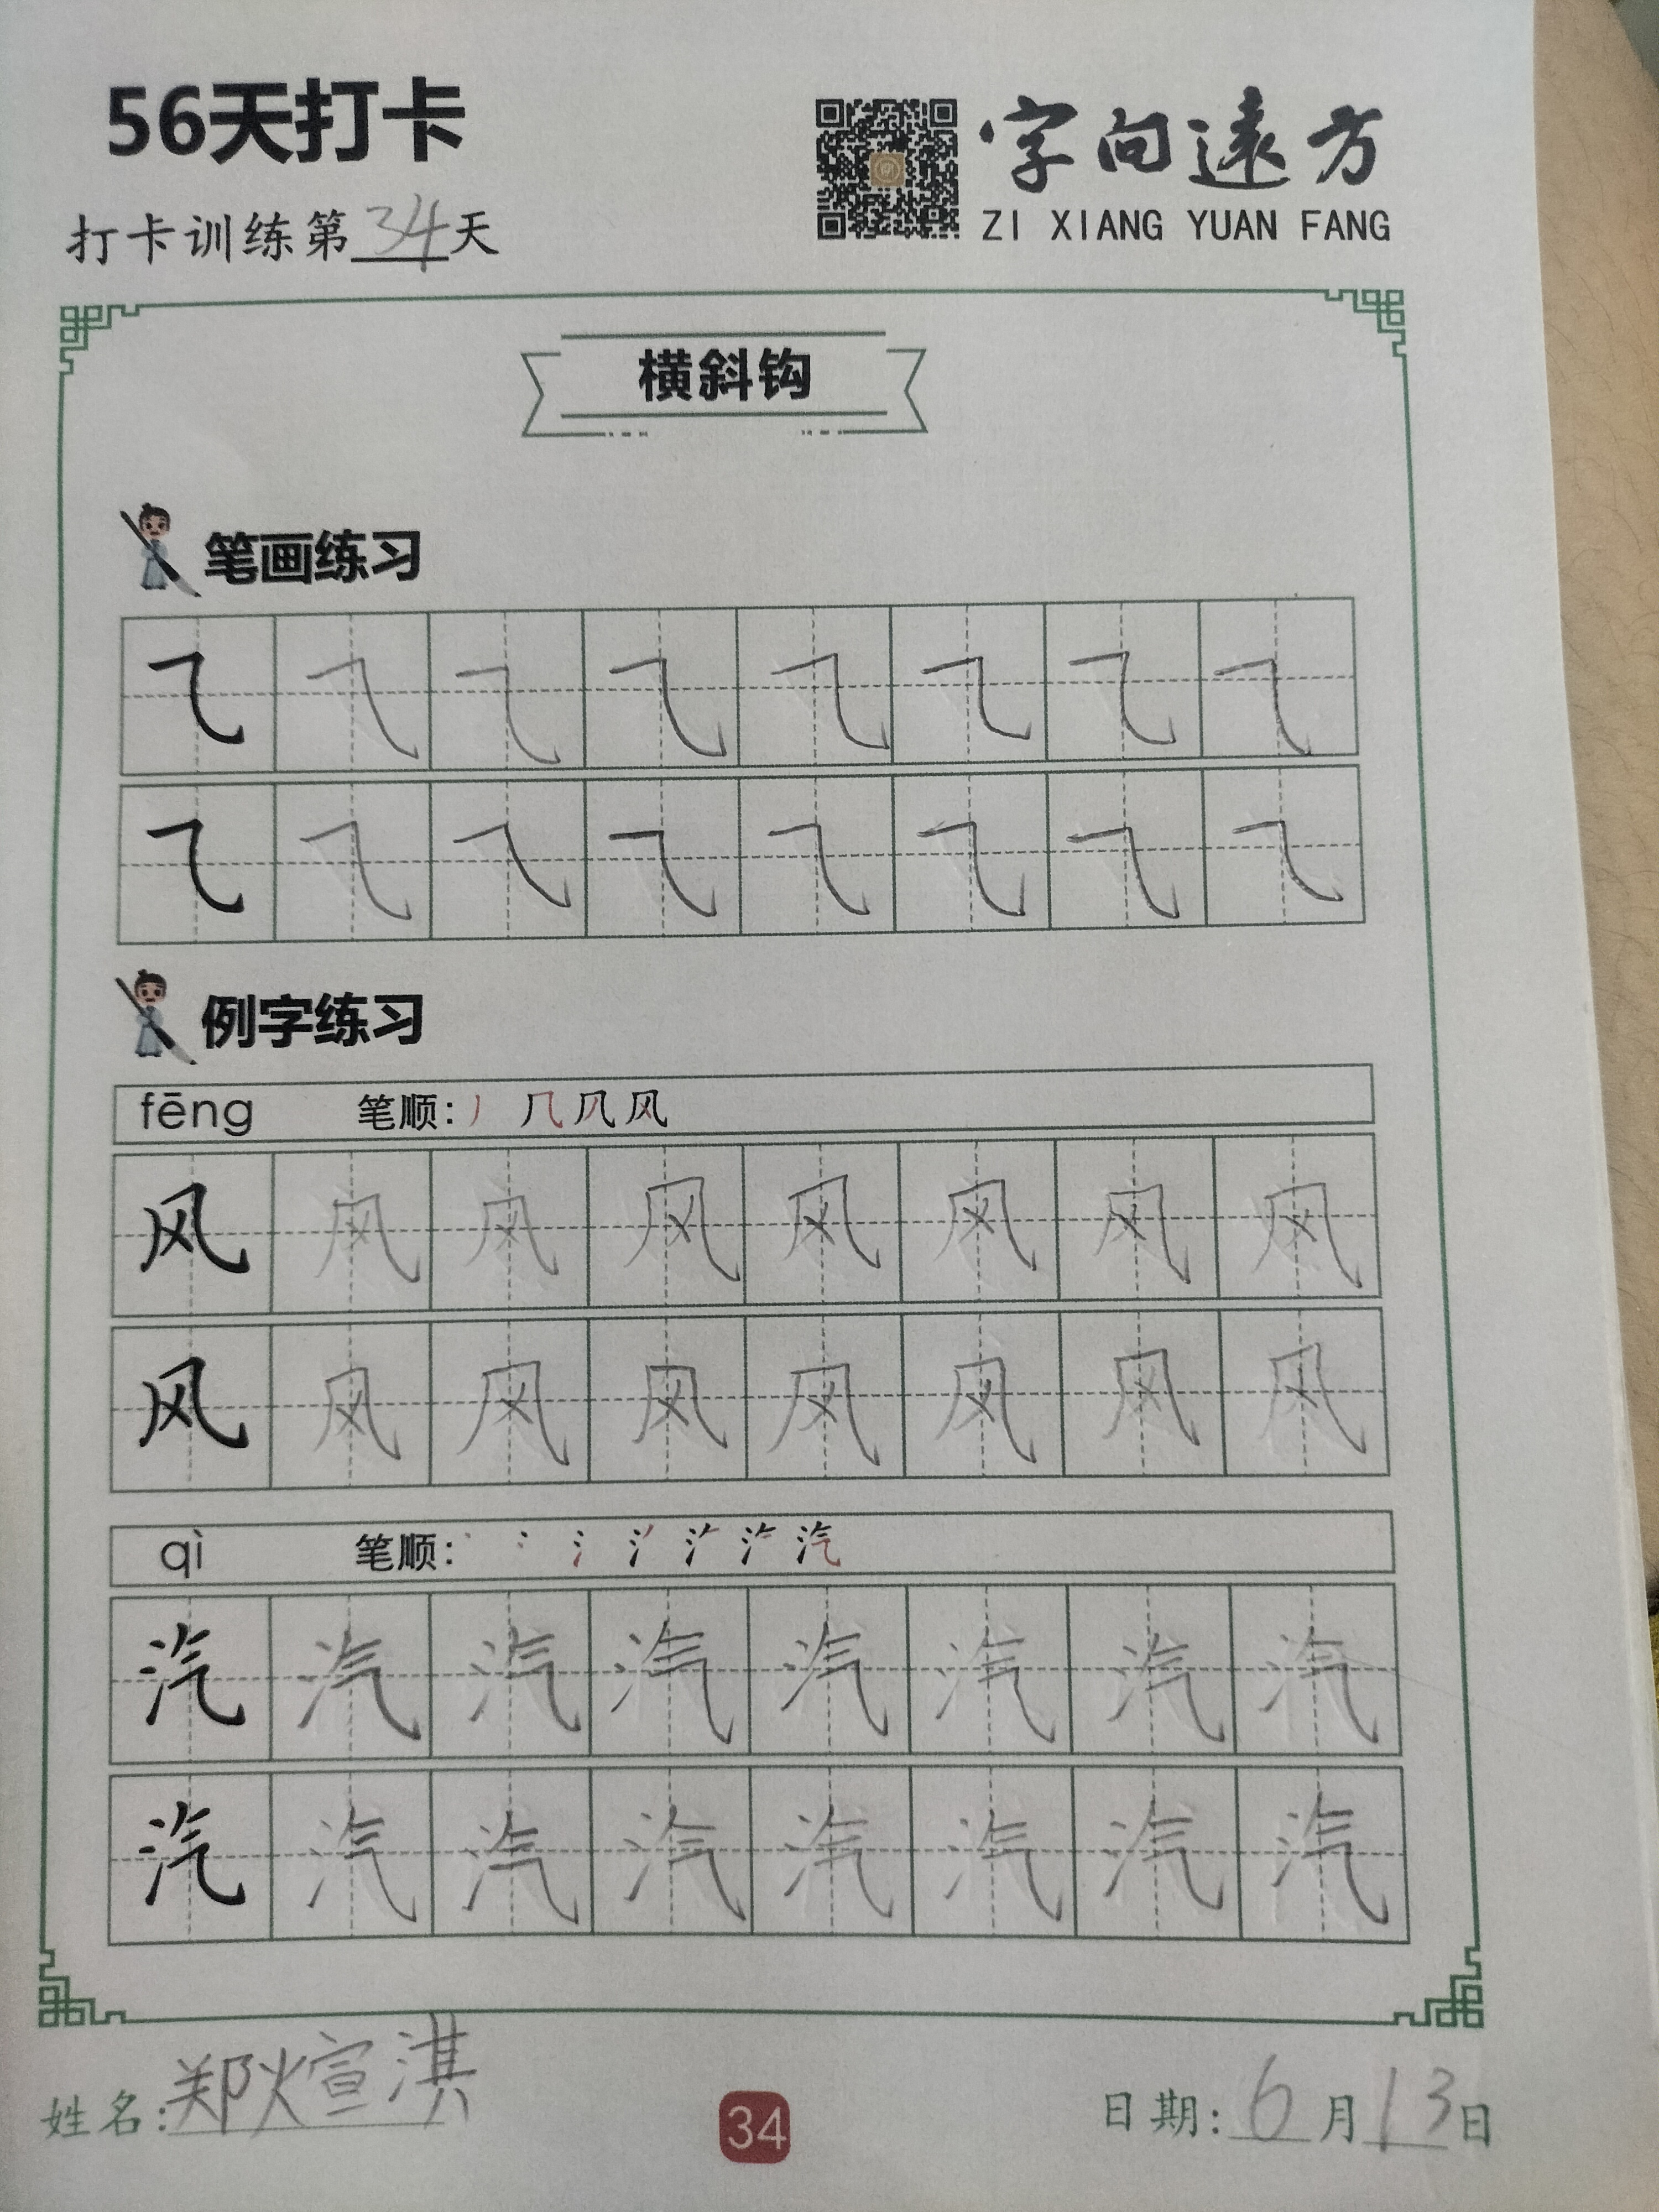 56天打卡
字向遠方
ZI XIANG YUAN FANG
打卡训练第34天
横斜钩
笔画练习
例字练习
fēng 笔顺: 丿 几 风
风 风 风 风 风 风 风 风
风 风 风 风 风 风 风 风
qì 笔顺: 汽
汽 汽 汽 汽 汽 汽 汽 汽
汽 汽 汽 汽 汽 汽 汽 汽
姓名: 郑煊淇
34
日期: 6月13日